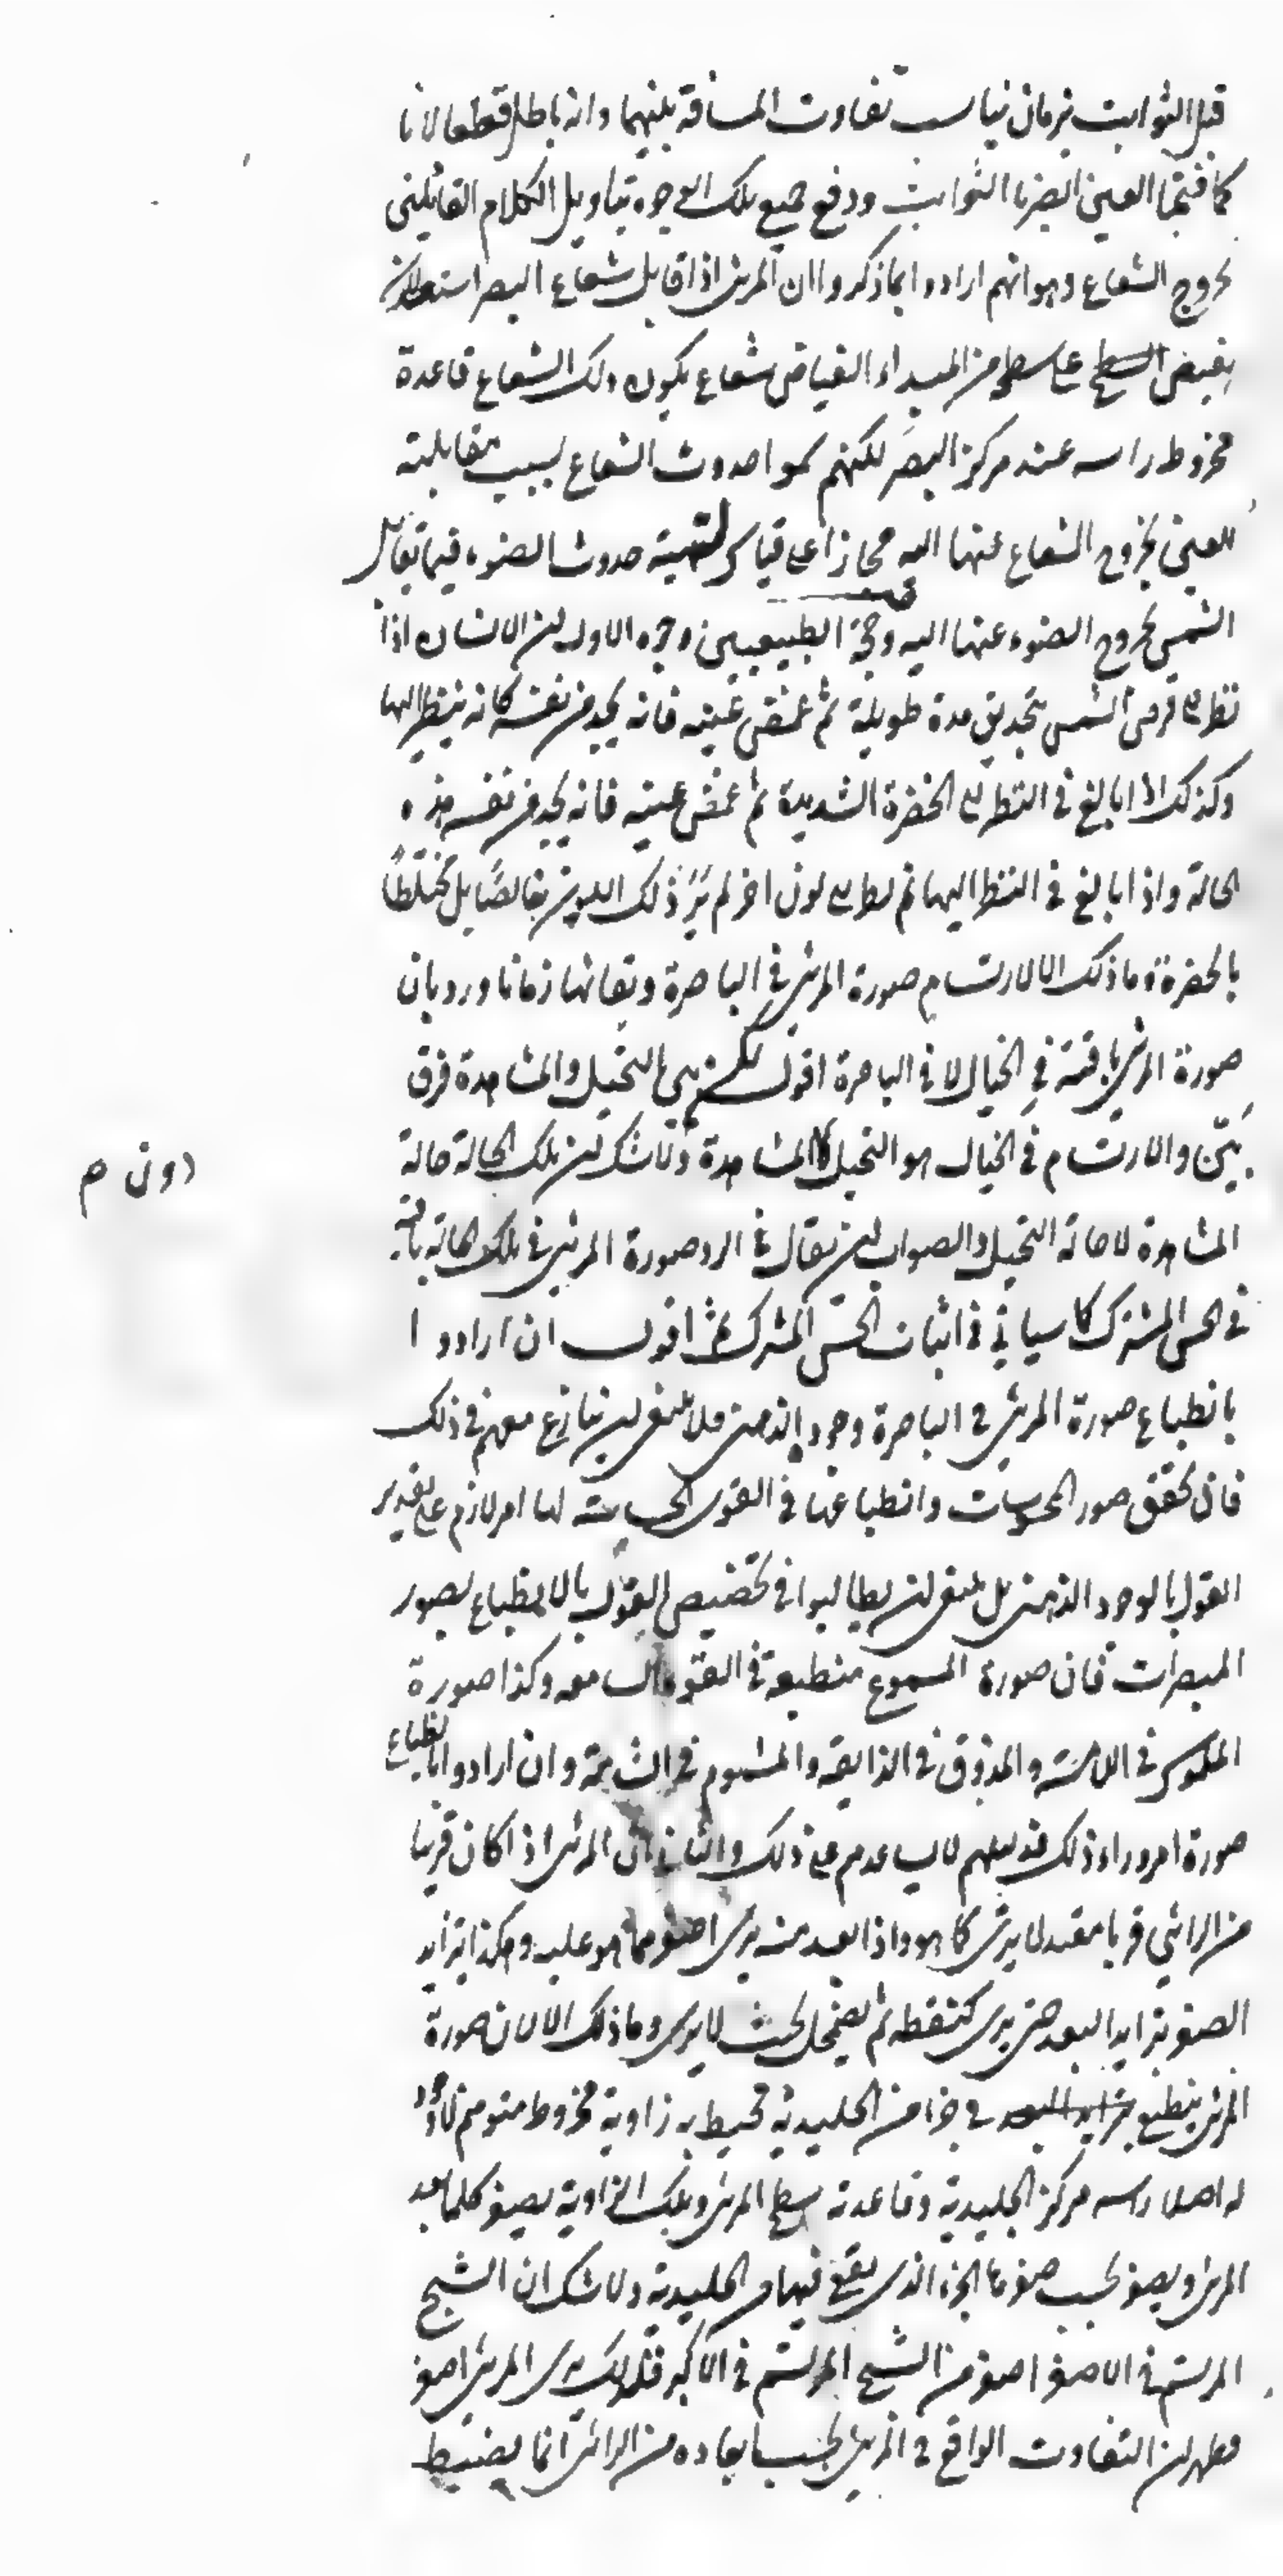 قبل الثوابت بزمان يناسب تفاوت المسافة بينهما وانه باطل قطعا لانا
كما فتحنا العين ابصرنا الثوابت ودفع جميع تلك الوجوه بتاويل الكلام القائلين
بخروج الشعاع وهو انهم ارادوا بما ذكروا ان المرئى اذا قابل شعاع البصر استعد لان
يفيض السطح على سطحه من المبداء الفياض شعاع يكون ذلك الشعاع قاعدة
مخروط راسه عند مركز البصر لكنهم سموا حدوث الشعاع بسبب مقابلته
للعين بخروج الشعاع عنها اليه مجازا على قياس تسمية حدوث الضوء فيما يقابل
الشمس بخروج الضوء عنها اليه وحجة الطبيعيين وجوه الاول ان الانسان اذا
نظر الى قرص الشمس بتحديق مدة طويلة ثم غمض عينيه فانه يجد من نفسه كانه ينظر اليها
وكذلك اذا بالغ فى النظر الى الخضرة الشديدة ثم غمض عينيه فانه يجد من نفسه هذه
الحالة واذا بالغ فى النظر اليها ثم نظر الى لون اخر لم ير ذلك اللون خالصا بل مختلطا
بالخضرة وما ذلك الا لارتسام صورة المرئى فى الباصرة وبقائها زمانا ورد بان
صورة المرئى باقية فى الخيال لا فى الباصرة اقول لكن بين التخيل والمشاهدة فرق
بيّن والارتسام فى الخيال هو التخيل المشاهدة ولا شك ان تلك الحالة حالة
دون ص
المشاهدة لا حالة التخيل والصواب ان يقال فى الرد صورة المرئى فى تلك الحالة باقية
فى الحس المشترك كما سياتي فى اثبات الحس المشترك ثم اقول ان ارادوا
بانطباع صورة المرئى فى الباصرة وجودها الذهنى فلا ينبغى ان ينازع معهم فى ذلك
فان تحقق صور المحسوسات وانطباعها فى القوى الحساسة لها امر لازم على تقدير
القول بالوجود الذهنى بل ينبغى ان يطالبوا فى تخصيص القول بالانطباع بصور
المبصرات فان صورة المسموع منطبعة فى القوة السامعه وكذا صورة
الملموس فى اللامسة والمذوق فى الذايقه والمشموم فى الشامة وان ارادوا انطباع
صورة امر وراء ذلك فدليلهم لا يساعدهم على ذلك والثانى ان المرئى اذا كان قريبا
من الرائي قربا معتدلا يرى كما هو واذا بعد منه يرى اصغر مما هو عليه وهكذا يتزايد
الصغر بتزايد البعد حتى يرى كنقطه ثم يضمحل بحيث لا يرى وما ذلك الا لان صورة
المرئى ينطبع بتزايد البعد فى جزء من الجليدية تحيط به زاوية مخروط متوهم لا وجود
له اصلا راسه مركز الجليدية وقاعدته سطح المرئى وتلك الزاوية يصغر كلما بعد
المرئى ويصغر بحسب صغرها الجزء الذى يقع فيها من الجليدية ولا شك ان الشبح
المرتسم فى الاصغر اصغر من الشبح المرتسم فى الاكبر فلذلك يرى المرئى اصغر
فظهر ان التفاوت الواقع فى المرئى بحسب ابعاده من الرائى انما يضبط